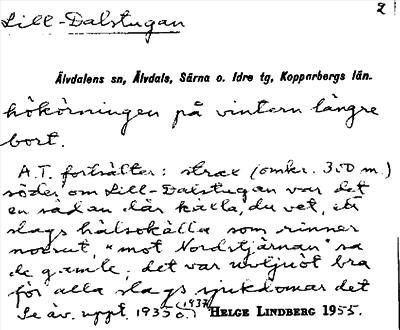 2
Lill-Dalstugan
Älvdalens sn, Älvdals, Särna o. Idre tg, Kopparbergs län.
hökörningen på vintern längre
bort.
A.T. fortsätter: strax (omkr. 350 m.)
söder om Lill-Dalstugan var det
en sådan där källa, du vet, en
slags hälsokälla som rinner
norrut, "mot Nordstjärnan" sa
de gamle; det var nyttjuöt bra
för alla slags sjukdomar det
Se äv. uppt. 1935 o. (1937)
HELGE LINDBERG 1955.